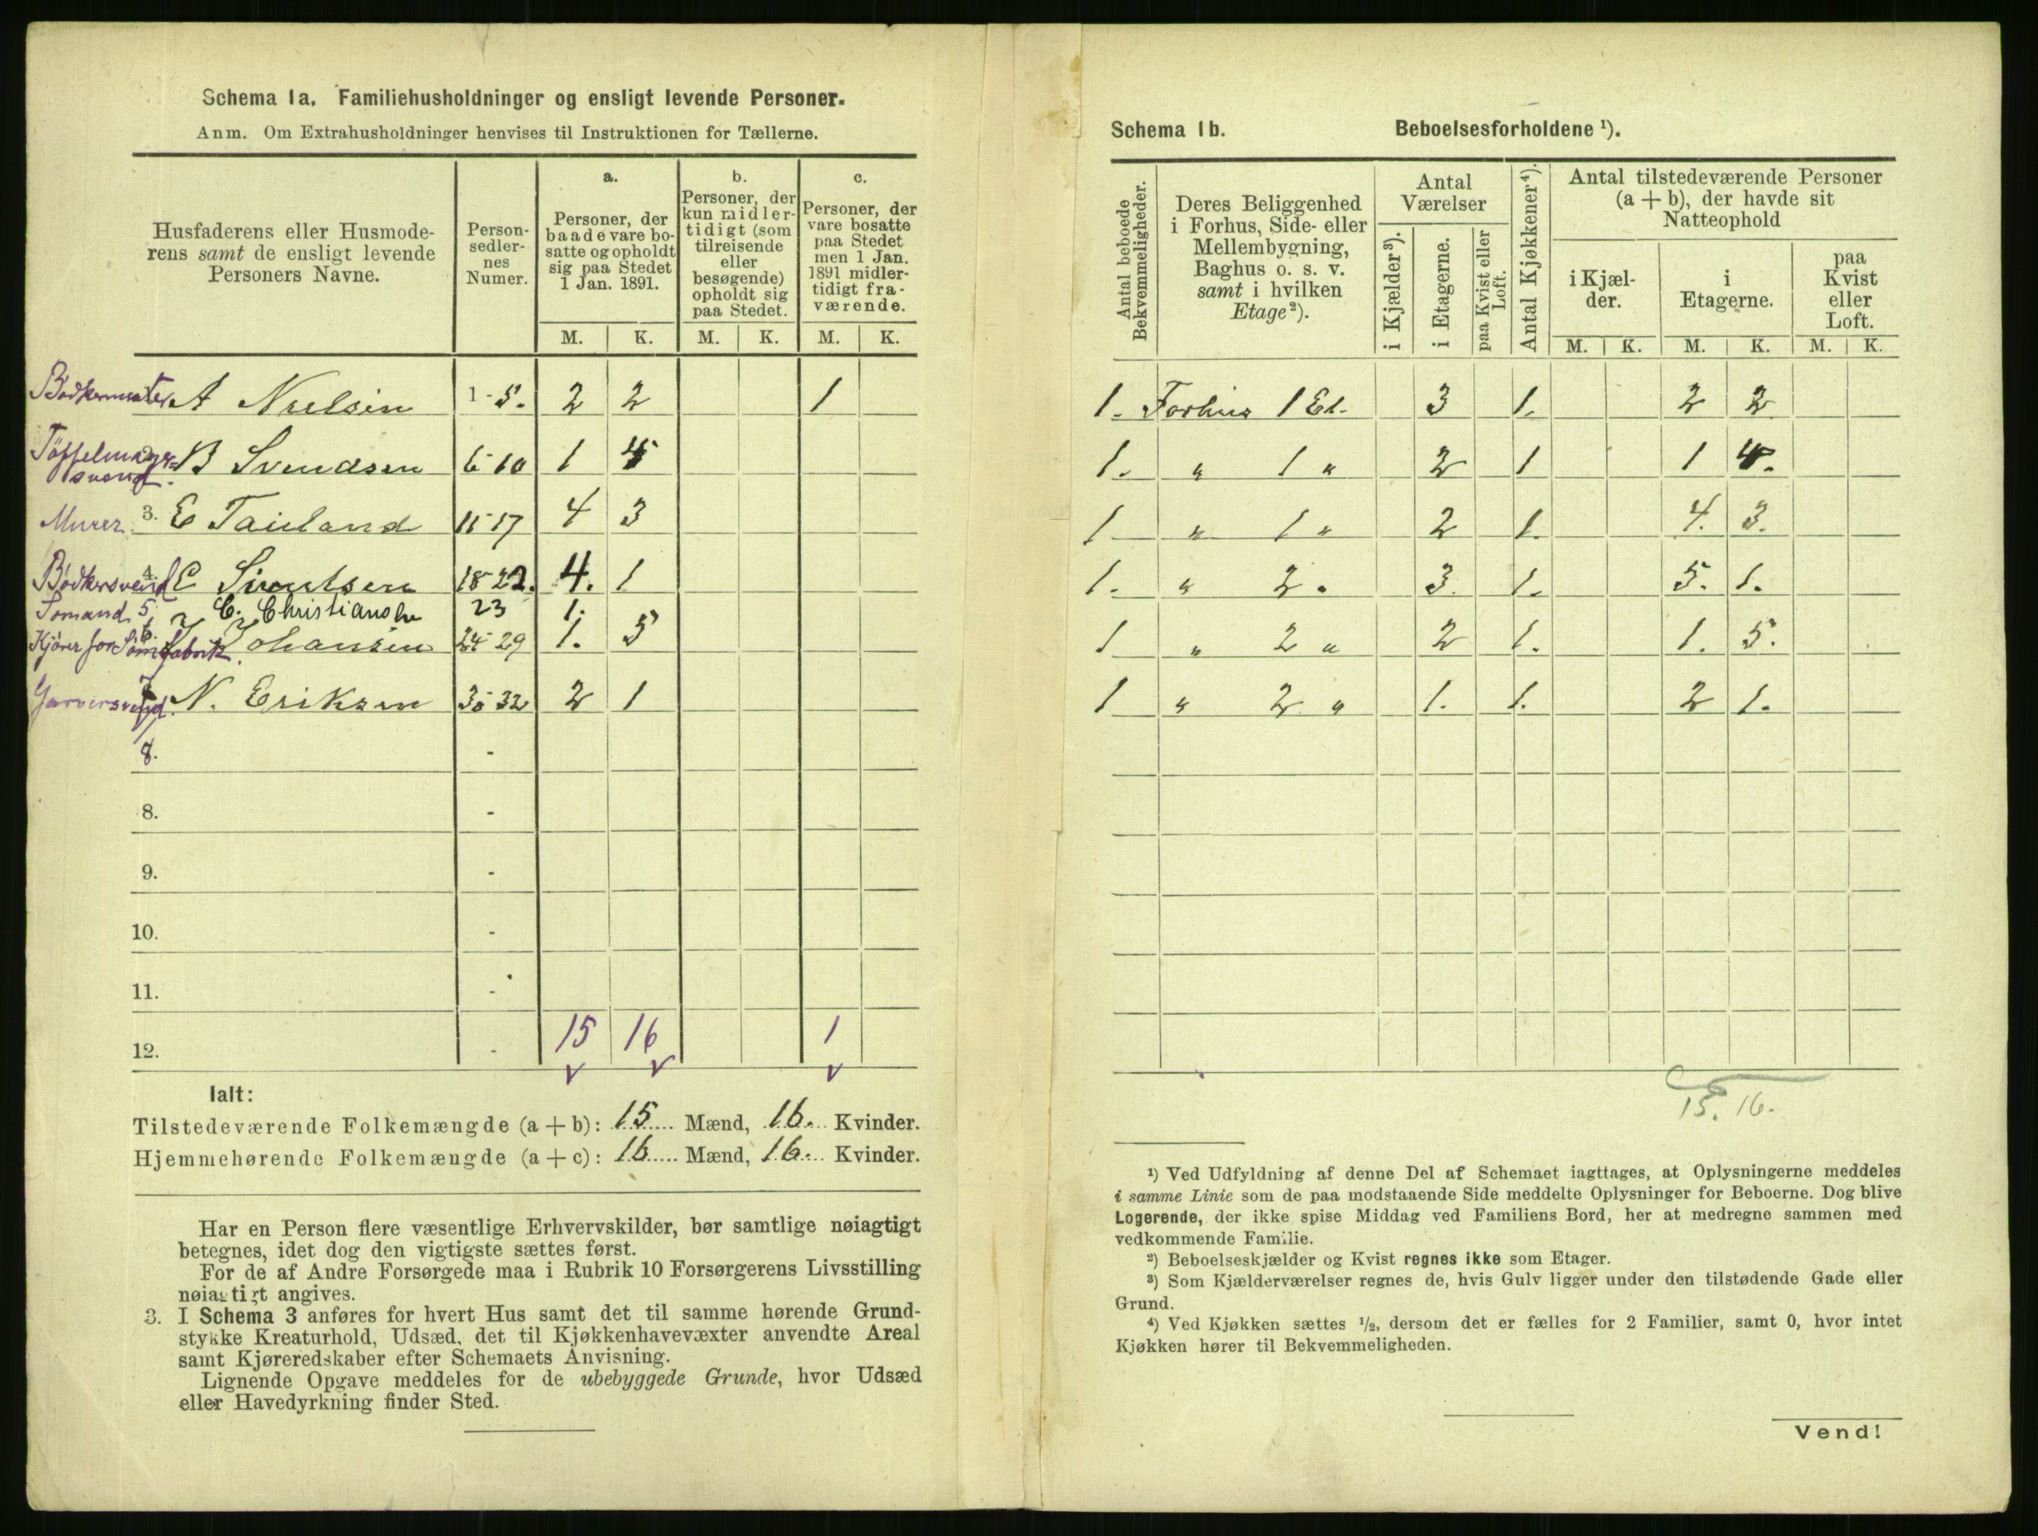 Schema 1a. Familiehusholdninger og ensligt levende Personer.
Anm. Om Extrahusholdninger henvises til Instruktionen for Tællerne.
Husfaderens eller Husmode-
rens samt de ensligt levende
Personers Navne.
Person-
sedler-
nes
Numer.
a.
Personer, der
baade vare bo-
satte og opholdt
sig paa Stedet
1 Jan. 1891.
b.
Personer, der
kun midler-
tidigt (som
tilreisende
eller
besøgende)
opholdt sig
paa Stedet.
c.
Personer, der
vare bosatte
paa Stedet
men 1 Jan.
1891 midler-
tidigt fra-
værende.
M. K. M. K. M. K.
Bødkermester A Nielsen 1-5. 2 2 1
Töffelmager-
svend. B Svendsen 6-10 1 4
Murer 3. E Tauland 11-17 4 3
Bødkersvend 4. E Simensen 18-22. 4. 1
Sømand 5 C. Christiansen 23 1.
Kjører for Sømfabrik. 6. J Johansen 24-29 1. 5
Garversvend. 7 N. Eriksen 30-32 2 1
8. -
8. -
9. -
10. -
11. -
12. - 15 16 1
Ialt:
Tilstedeværende Folkemængde (a + b): 15 Mænd, 16. Kvinder.
Hjemmehørende Folkemængde (a + c): 16 Mænd, 16. Kvinder.
Har en Person flere væsentlige Erhvervskilder, bør samtlige nøiagtigt
betegnes, idet dog den vigtigste sættes først.
For de af Andre Forsørgede maa i Rubrik 10 Forsørgerens Livsstilling
nøiagtigt angives.
3. I Schema 3 anføres for hvert Hus samt det til samme hørende Grund-
stykke Kreaturhold, Udsæd, det til Kjøkkenhavevæxter anvendte Areal
samt Kjøreredskaber efter Schemaets Anvisning.
Lignende Opgave meddeles for de ubebyggede Grunde, hvor Udsæd
eller Havedyrkning finder Sted.
Schema 1b. Beboelsesforholdene ¹).
Antal beboede
Bekvemmeligheder.
Deres Beliggenhed
i Forhus, Side- eller
Mellembygning,
Baghus o. s. v.
samt i hvilken
Etage²).
Antal
Værelser
i Kjælder³).
i Etagerne.
paa Kvist eller
Loft.
Antal Kjøkkener⁴).
Antal tilstedeværende Personer
(a + b), der havde sit
Natteophold
i Kjæl-
der.
i
Etagerne.
paa
Kvist
eller
Loft.
M. K. M. K. M. K.
1. Forhus 1 Et. 3 1. 2 2
1. " 1 " 2 1 1 4.
1 " 1 " 2 1. 4. 3.
1. " 2. 3. 1. 5. 1.
1 " 2 " 2 1. 1. 5.
1 " 2 " 1. 1. 2 1.
15. 16.
¹) Ved Udfyldning af denne Del af Schemaet iagttages, at Oplysningerne meddeles
i samme Linie som de paa modstaaende Side meddelte Oplysninger for Beboerne. Dog blive
Logerende, der ikke spise Middag ved Familiens Bord, her at medregne sammen med
vedkommende Familie.
²) Beboelseskjælder og Kvist regnes ikke som Etager.
³) Som Kjælderværelser regnes de, hvis Gulv ligger under den tilstødende Gade eller
Grund.
⁴) Ved Kjøkken sættes ½, dersom det er fælles for 2 Familier, samt 0, hvor intet
Kjøkken hører til Bekvemmeligheden.
Vend!